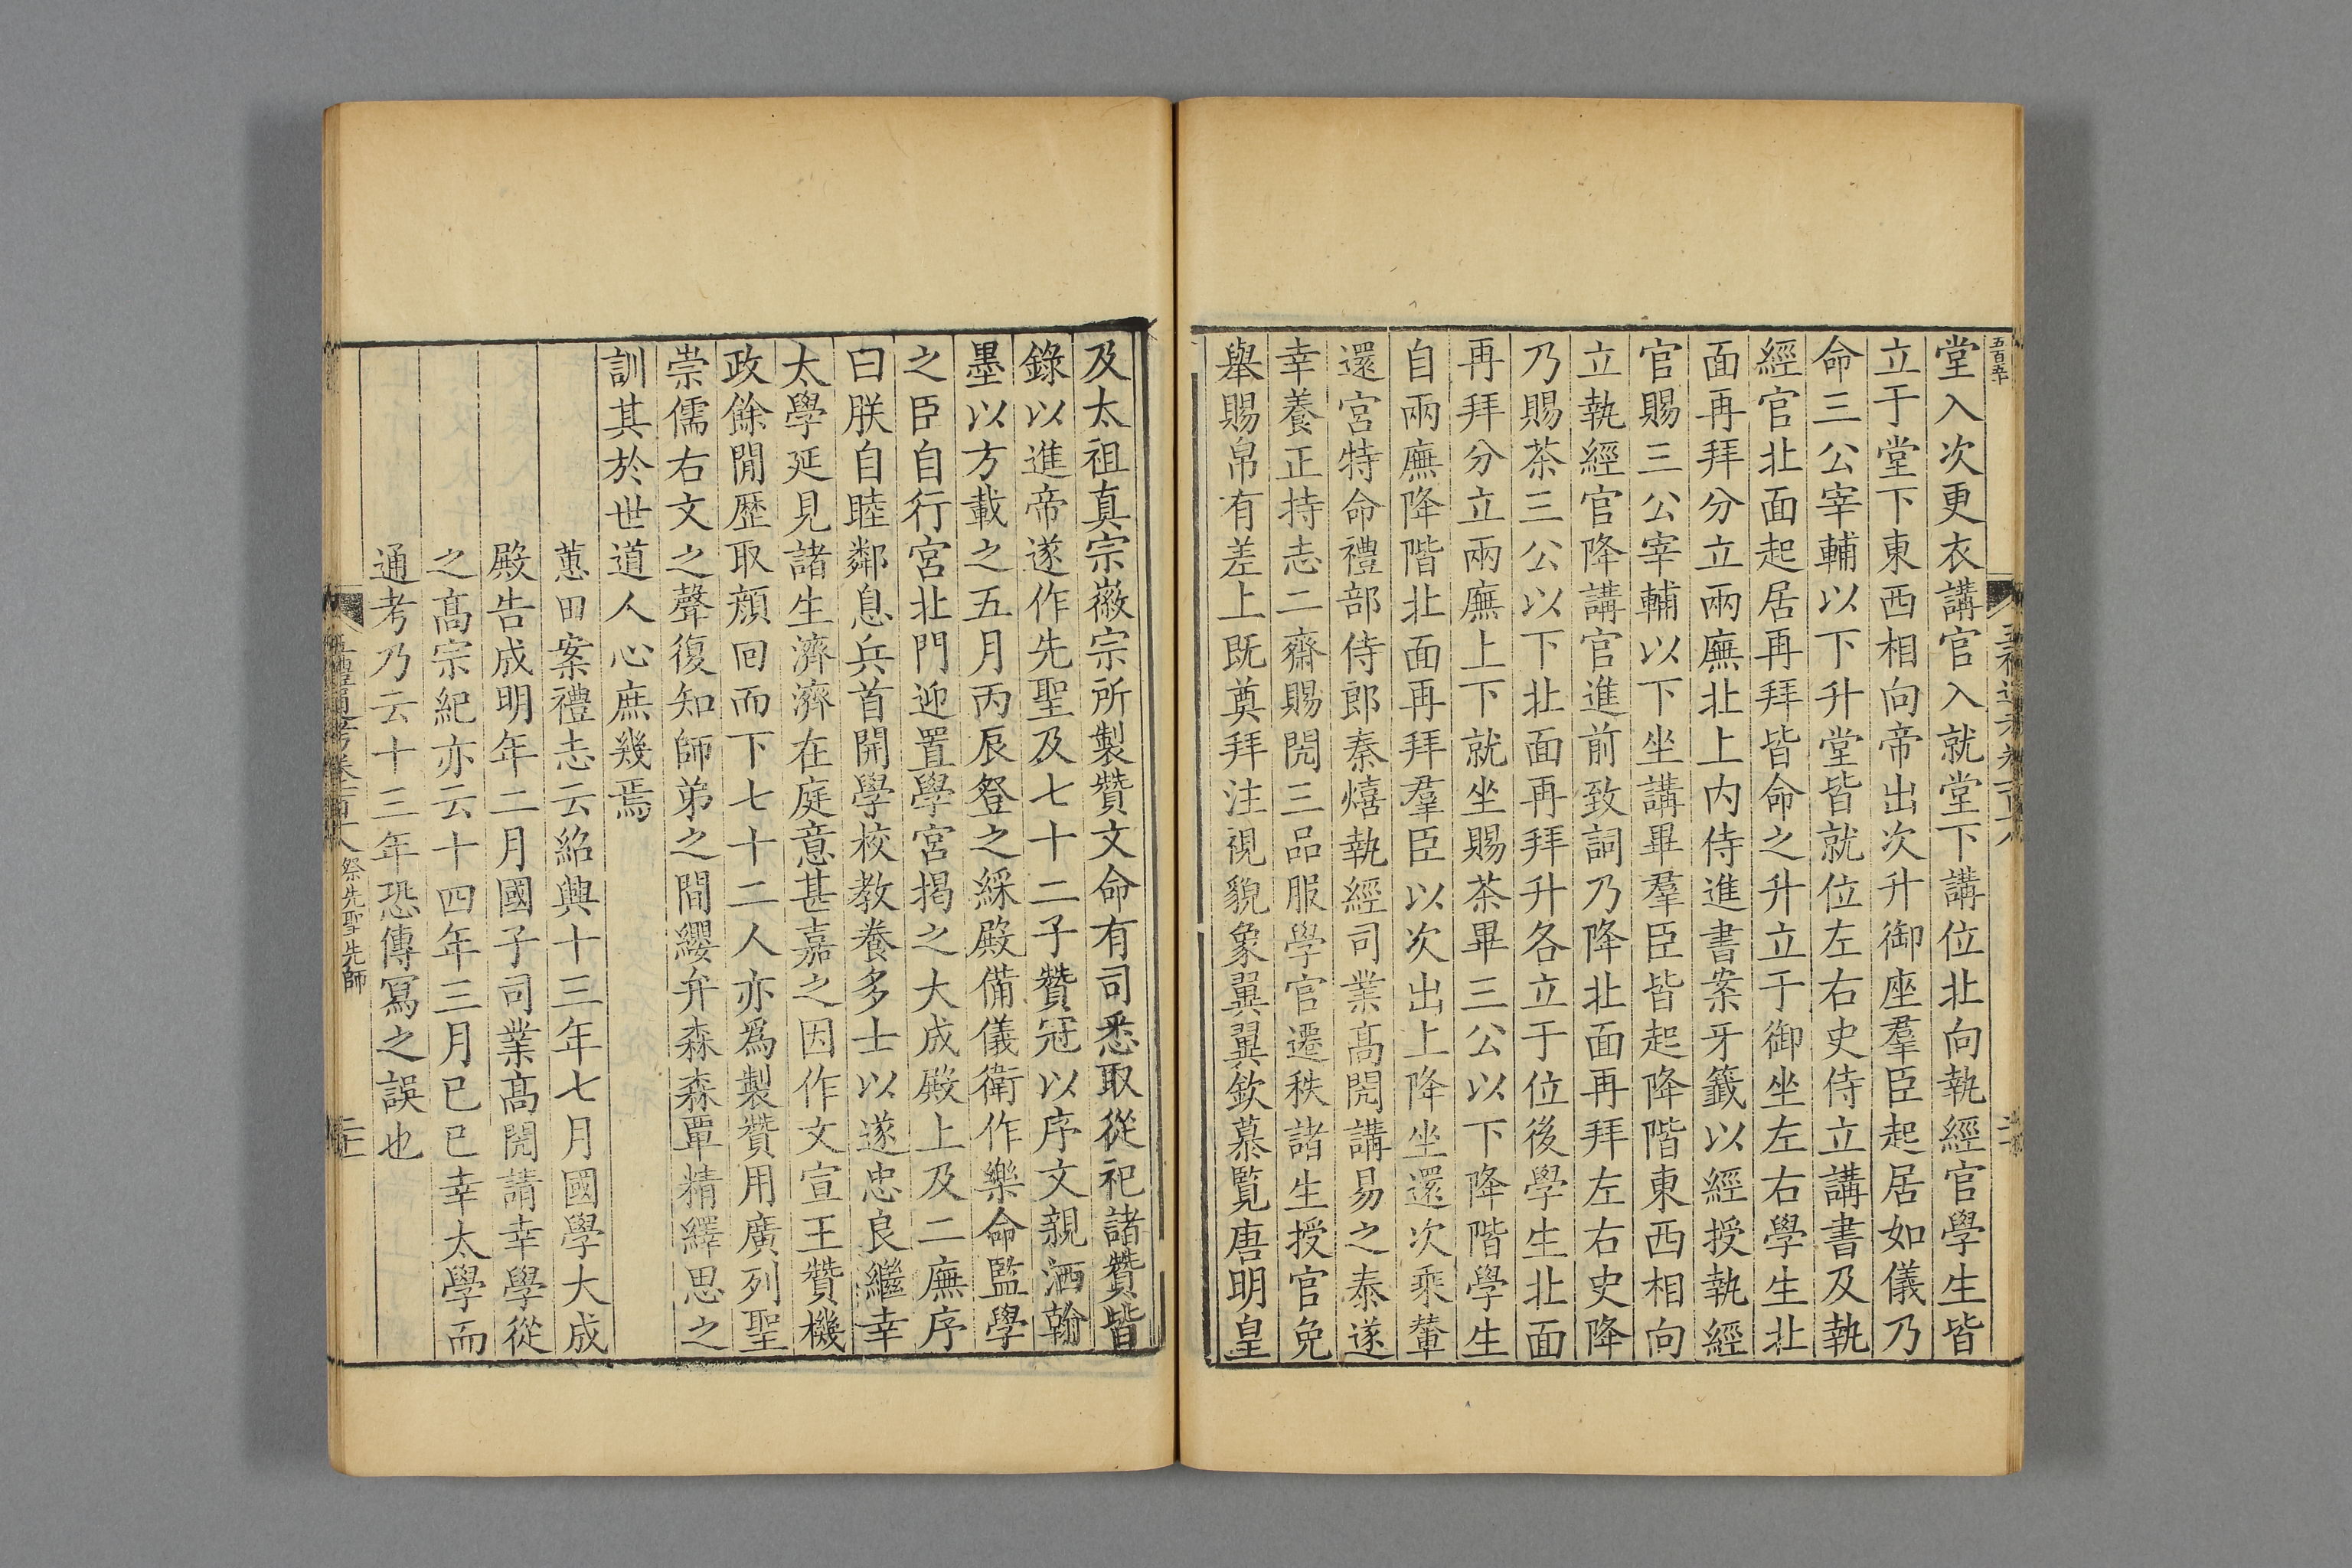 五百五十
堂入次更衣講官入就堂下講位北向執經官學生皆
立于堂下東西相向帝出次升御座羣臣起居如儀乃
命三公宰輔以下升堂皆就位左右史侍立講書及執
經官北面起居再拜皆命之升立于御坐左右學生北
面再拜分立兩廡北上内侍進書案牙籤以經授執經
官賜三公宰輔以下坐講畢羣臣皆起降階東西相向
立執經官降講官進前致詞乃降北面再拜左右史降
乃賜茶三公以下北面再拜升各立于位後學生北面
再拜分立兩廡上下就坐賜茶畢三公以下降階學生
自兩廡降階北面再拜羣臣以次出上降坐還次乘輦
還宮特命禮部侍郎秦熺執經司業髙閌講易之泰遂
幸養正持志二齋賜閌三品服學官遷秩諸生授官免
舉賜帛有差上既奠拜注視貌象翼翼欽慕覧唐明皇
及太祖真宗徽宗所製贊文命有司悉取從祀諸贊皆
錄以進帝遂作先聖及七十二子贊冠以序文親洒翰
墨以方載之五月丙辰登之綵殿備儀衛作樂命監學
之臣自行宮北門迎置學宮揭之大成殿上及二廡序
曰朕自睦鄰息兵首開學校教養多士以遂忠良繼幸
太學延見諸生濟濟在庭意甚嘉之因作文宣王贊機
政餘閒歴取顔回而下七十二人亦爲製贊用廣列聖
崇儒右文之聲復知師弟之間纓弁森森覃精繹思之
訓其於世道人心庶幾焉
蕙田案禮志云紹興十三年七月國學大成
殿告成明年二月國子司業髙閌請幸學從
之髙宗紀亦云十四年三月已巳幸太學而
通考乃云十三年恐傳寫之誤也
五禮通考卷一百十八 祭先聖先師